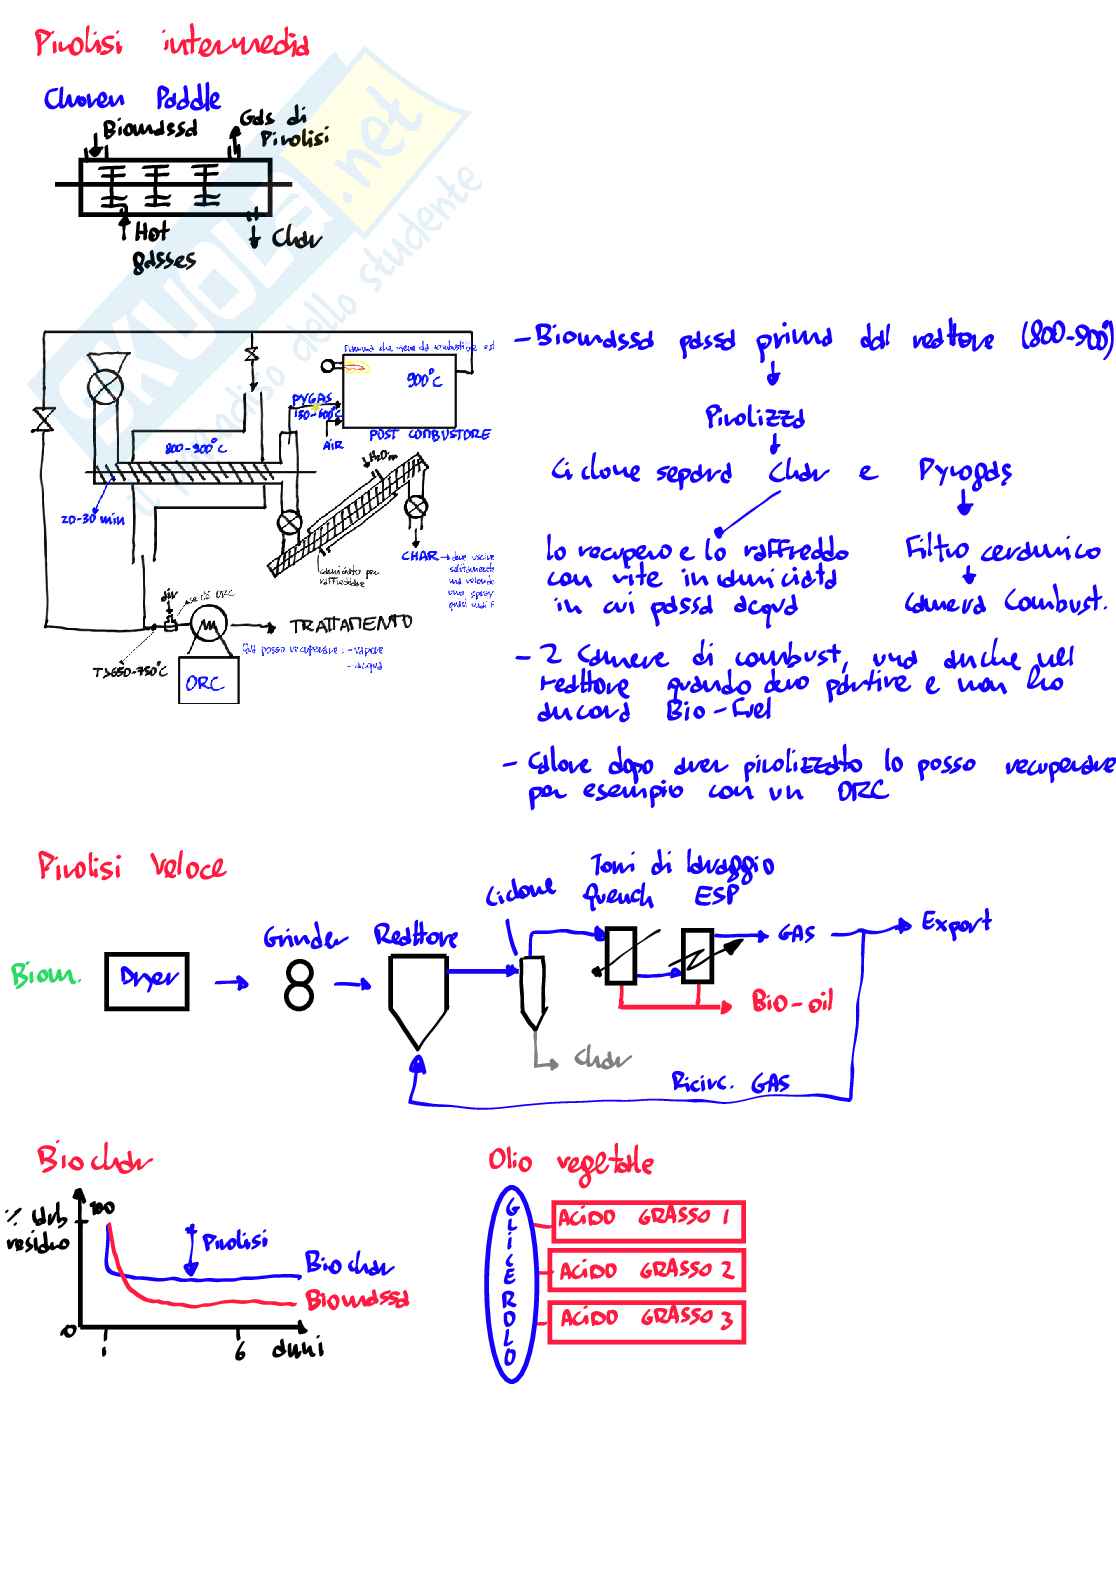 Pirolisi intermedia
Choren Paddle
Biomassa
Gas di
Pirolisi
Hot
gasses
Char
SKUOLA.net
dello studente
900°C
PYGAS
150-600°C
AIR
POST COMBUSTORE
800-900°C
20-30 min
H₂O
CHAR
camiciato per
raffreddare
air
ORC
TRATTAMENTO
posso recuperare: - vapore
- acqua
T>650-750°C
ORC
- Biomassa passa prima dal reattore (800-900°)
Pirolizza
Ciclone separa Char e Pyrogas
lo recupero e lo raffreddo
con vite incamiciata
in cui passa acqua
Filtro ceramico
Camera Combust.
- 2 Camere di combust, una anche nel
reattore quando devo partire e non ho
ancora Bio-Fuel
- Calore dopo aver pirolizzato lo posso recuperare
per esempio con un ORC
Pirolisi Veloce
Biom.
Dryer
Grinder
Reattore
Ciclone
Torri di lavaggio
Quench ESP
GAS
Export
Bio-oil
Char
Ricirc. GAS
Biochar
% Carb
residuo
100
0
1
6
anni
Pirolisi
Biochar
Biomassa
Olio vegetale
GLICEROLO
ACIDO GRASSO 1
ACIDO GRASSO 2
ACIDO GRASSO 3